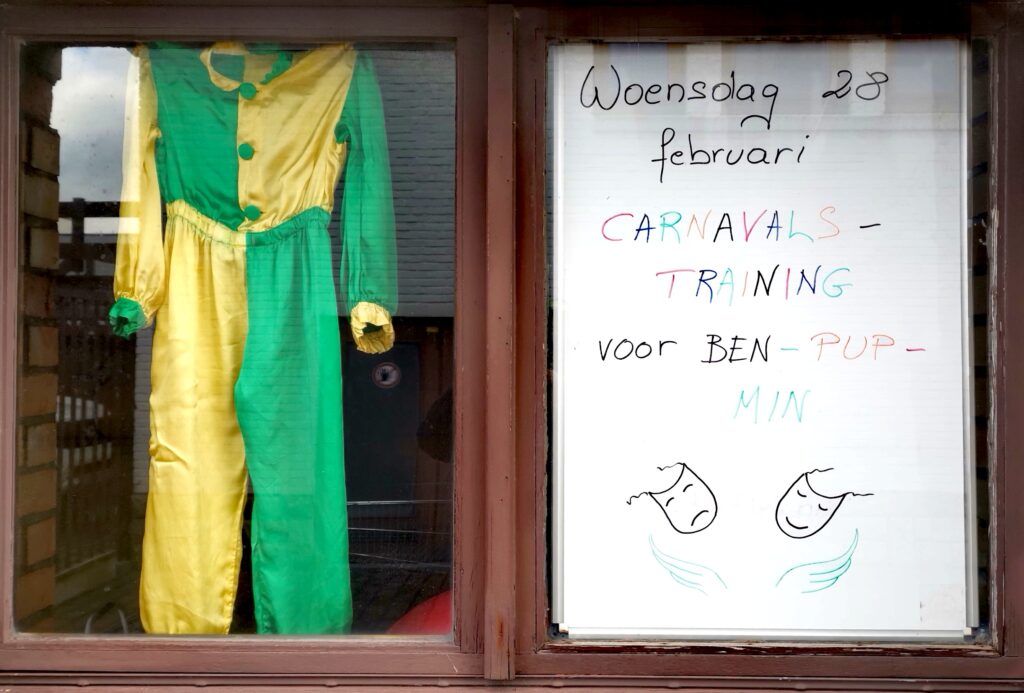 Woensdag 28
februari
CARNAVALS-
TRAINING
voor BEN-PUP-
MIN